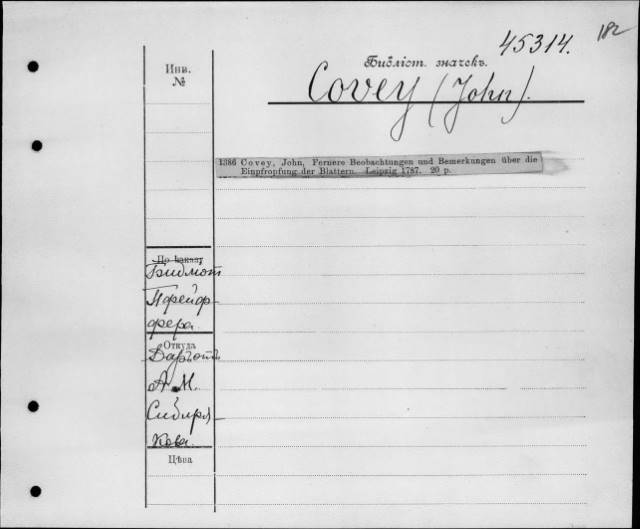 182
45314.
Инв.
№
Библіот. значекъ.
Covey (John).
1386 Covey, John, Fernere Beobachtungen und Bemerkungen über die
Einpfropfung der Blattern. Leipzig 1787. 20 p.
По заказу
Библіот
Пфейф-
фера
Откуда
Даръ отъ
А. М.
Сибиря
кова.
Цѣна